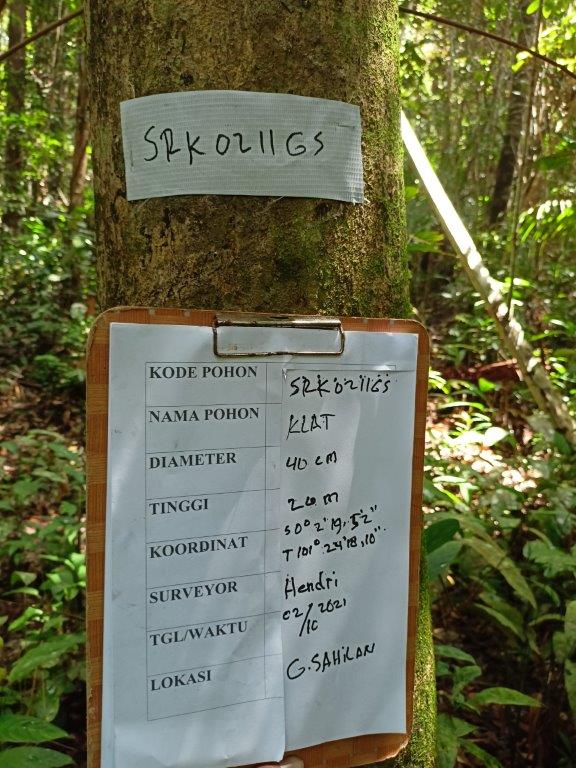 SRK0211GS
KODE POHON SRK0211GS
NAMA POHON KLAT
DIAMETER 40 cm
TINGGI 20 m
KOORDINAT S 0° 2' 19, 52"
T 101° 24' 18, 10"
SURVEYOR Hendri
TGL/WAKTU 02/10 2021
LOKASI G. SAHILAN